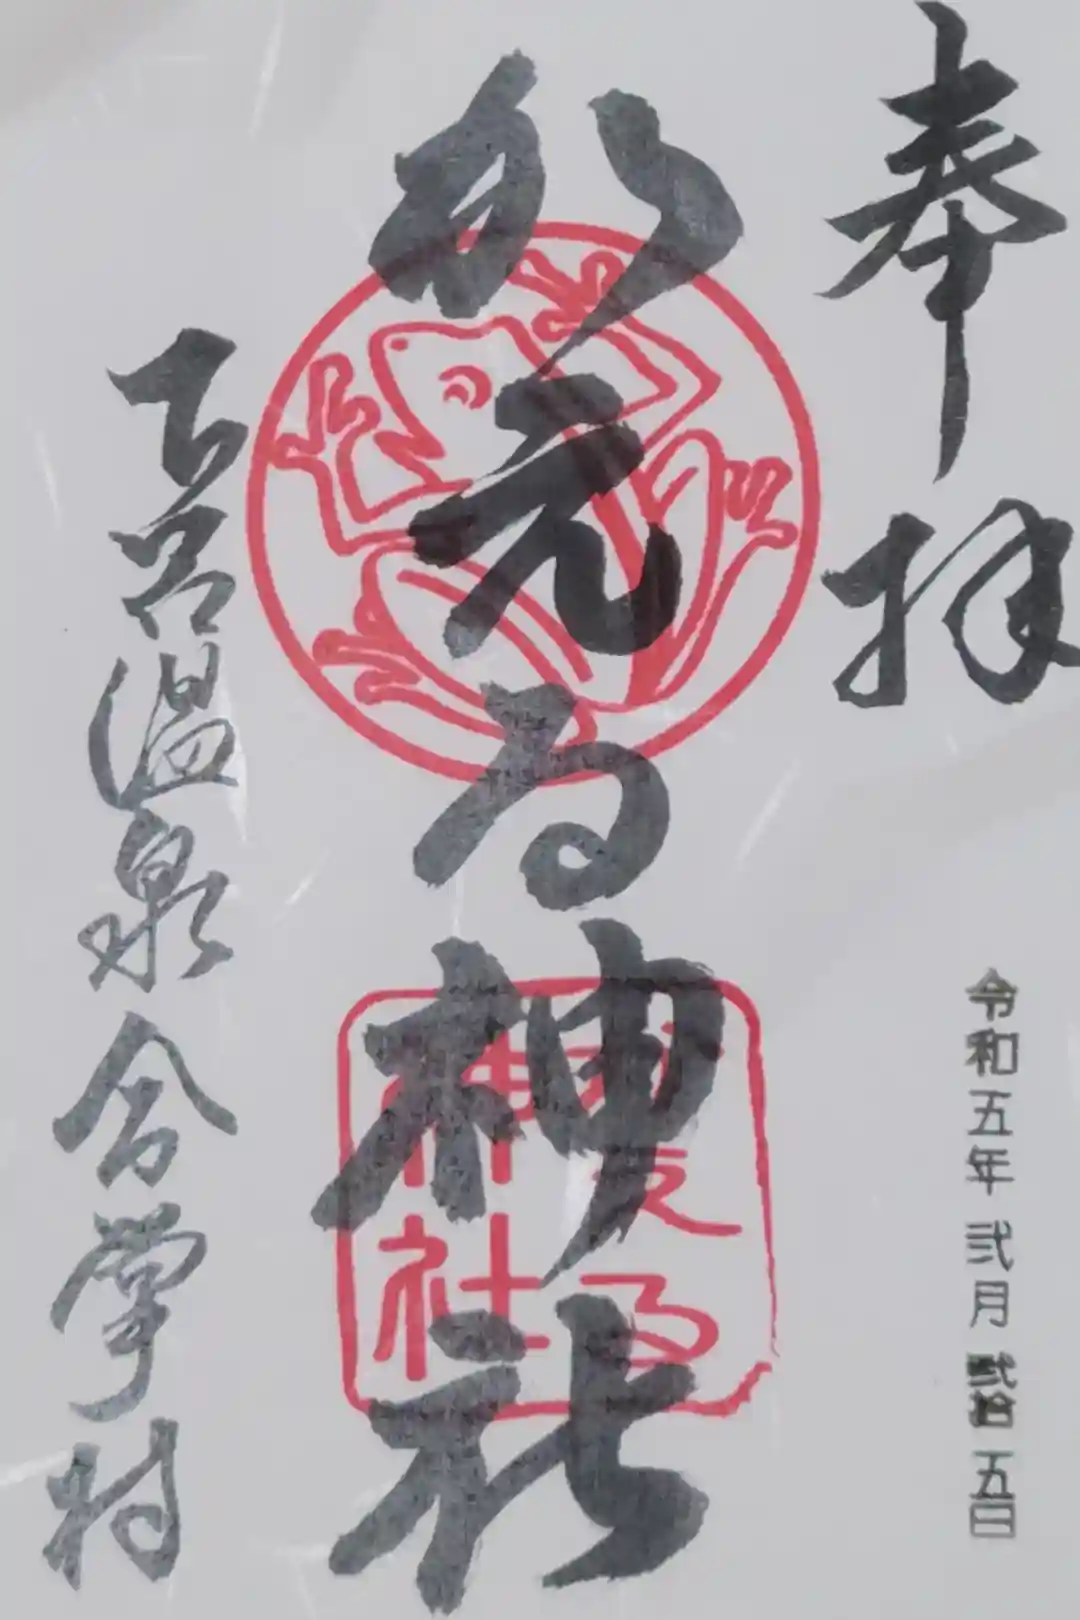 奉拝
かえる神社
かえる
神社
下呂温泉合掌村
令和五年弐月弐拾五日